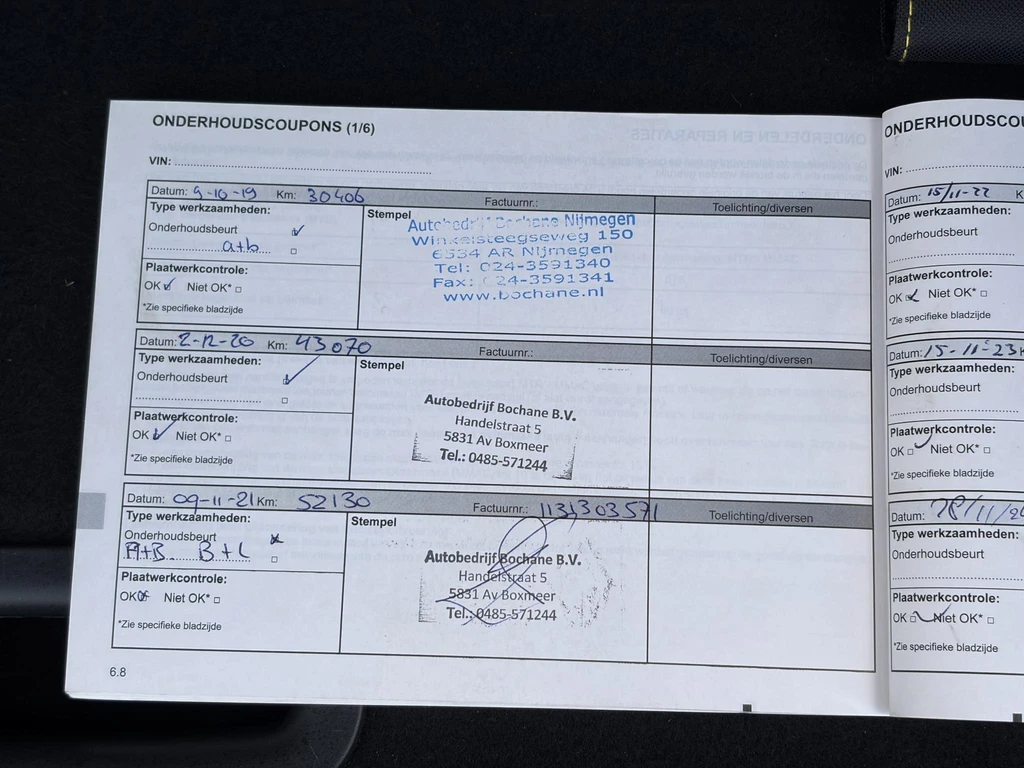 ONDERHOUDSCOUPONS (1/6)
VIN:
Datum: 9-10-19 Km: 30406 Factuurnr.: Toelichting/diversen
Type werkzaamheden:
Stempel
Onderhoudsbeurt
a+b
Plaatwerkcontrole:
OK Niet OK*
*Zie specifieke bladzijde
Autobedrijf Bochane Nijmegen
Winkelsteegseweg 150
6534 AR Nijmegen
Tel: 024-3591340
Fax: 024-3591341
www.bochane.nl
Datum: 2-12-20 Km: 43070 Factuurnr.: Toelichting/diversen
Type werkzaamheden:
Stempel
Onderhoudsbeurt
Plaatwerkcontrole:
OK Niet OK*
*Zie specifieke bladzijde
Autobedrijf Bochane B.V.
Handelstraat 5
5831 Av Boxmeer
Tel.: 0485-571244
Datum: 09-11-21 Km: 52130 Factuurnr.: 1131303571 Toelichting/diversen
Type werkzaamheden:
Stempel
Onderhoudsbeurt
A+B B+L
Plaatwerkcontrole:
OK Niet OK*
*Zie specifieke bladzijde
Autobedrijf Bochane B.V.
Handelstraat 5
5831 Av Boxmeer
Tel.: 0485-571244
6.8
ONDERHOUDSCOU
VIN:
Datum: 15/11-22 K
Type werkzaamheden:
Onderhoudsbeurt
Plaatwerkcontrole:
OK Niet OK*
*Zie specifieke bladzijde
Datum: 15-11-23
Type werkzaamheden:
Onderhoudsbeurt
Plaatwerkcontrole:
OK Niet OK*
*Zie specifieke bladzijde
Datum:
Type werkzaamheden:
Onderhoudsbeurt
Plaatwerkcontrole:
OK Niet OK*
*Zie specifieke bladzijde